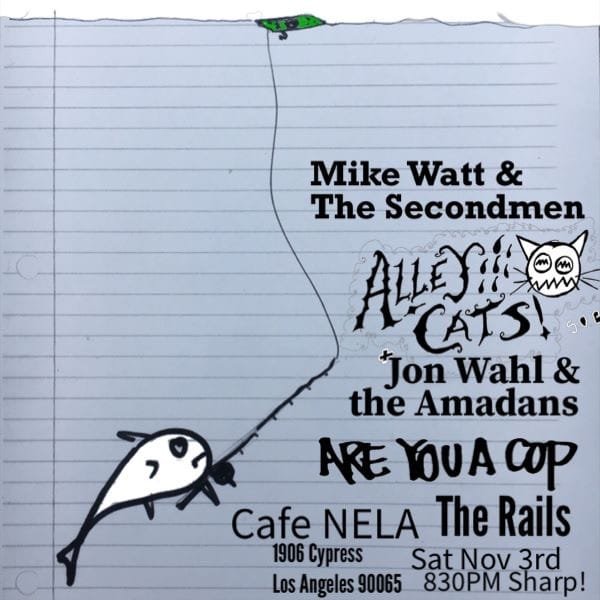 Mike Watt &
The Secondmen
ALLEY!!!
CATS!
+
Jon Wahl &
the Amadans
ARE YOU A COP
The Rails
Cafe NELA
1906 Cypress
Los Angeles 90065
Sat Nov 3rd
830PM Sharp!